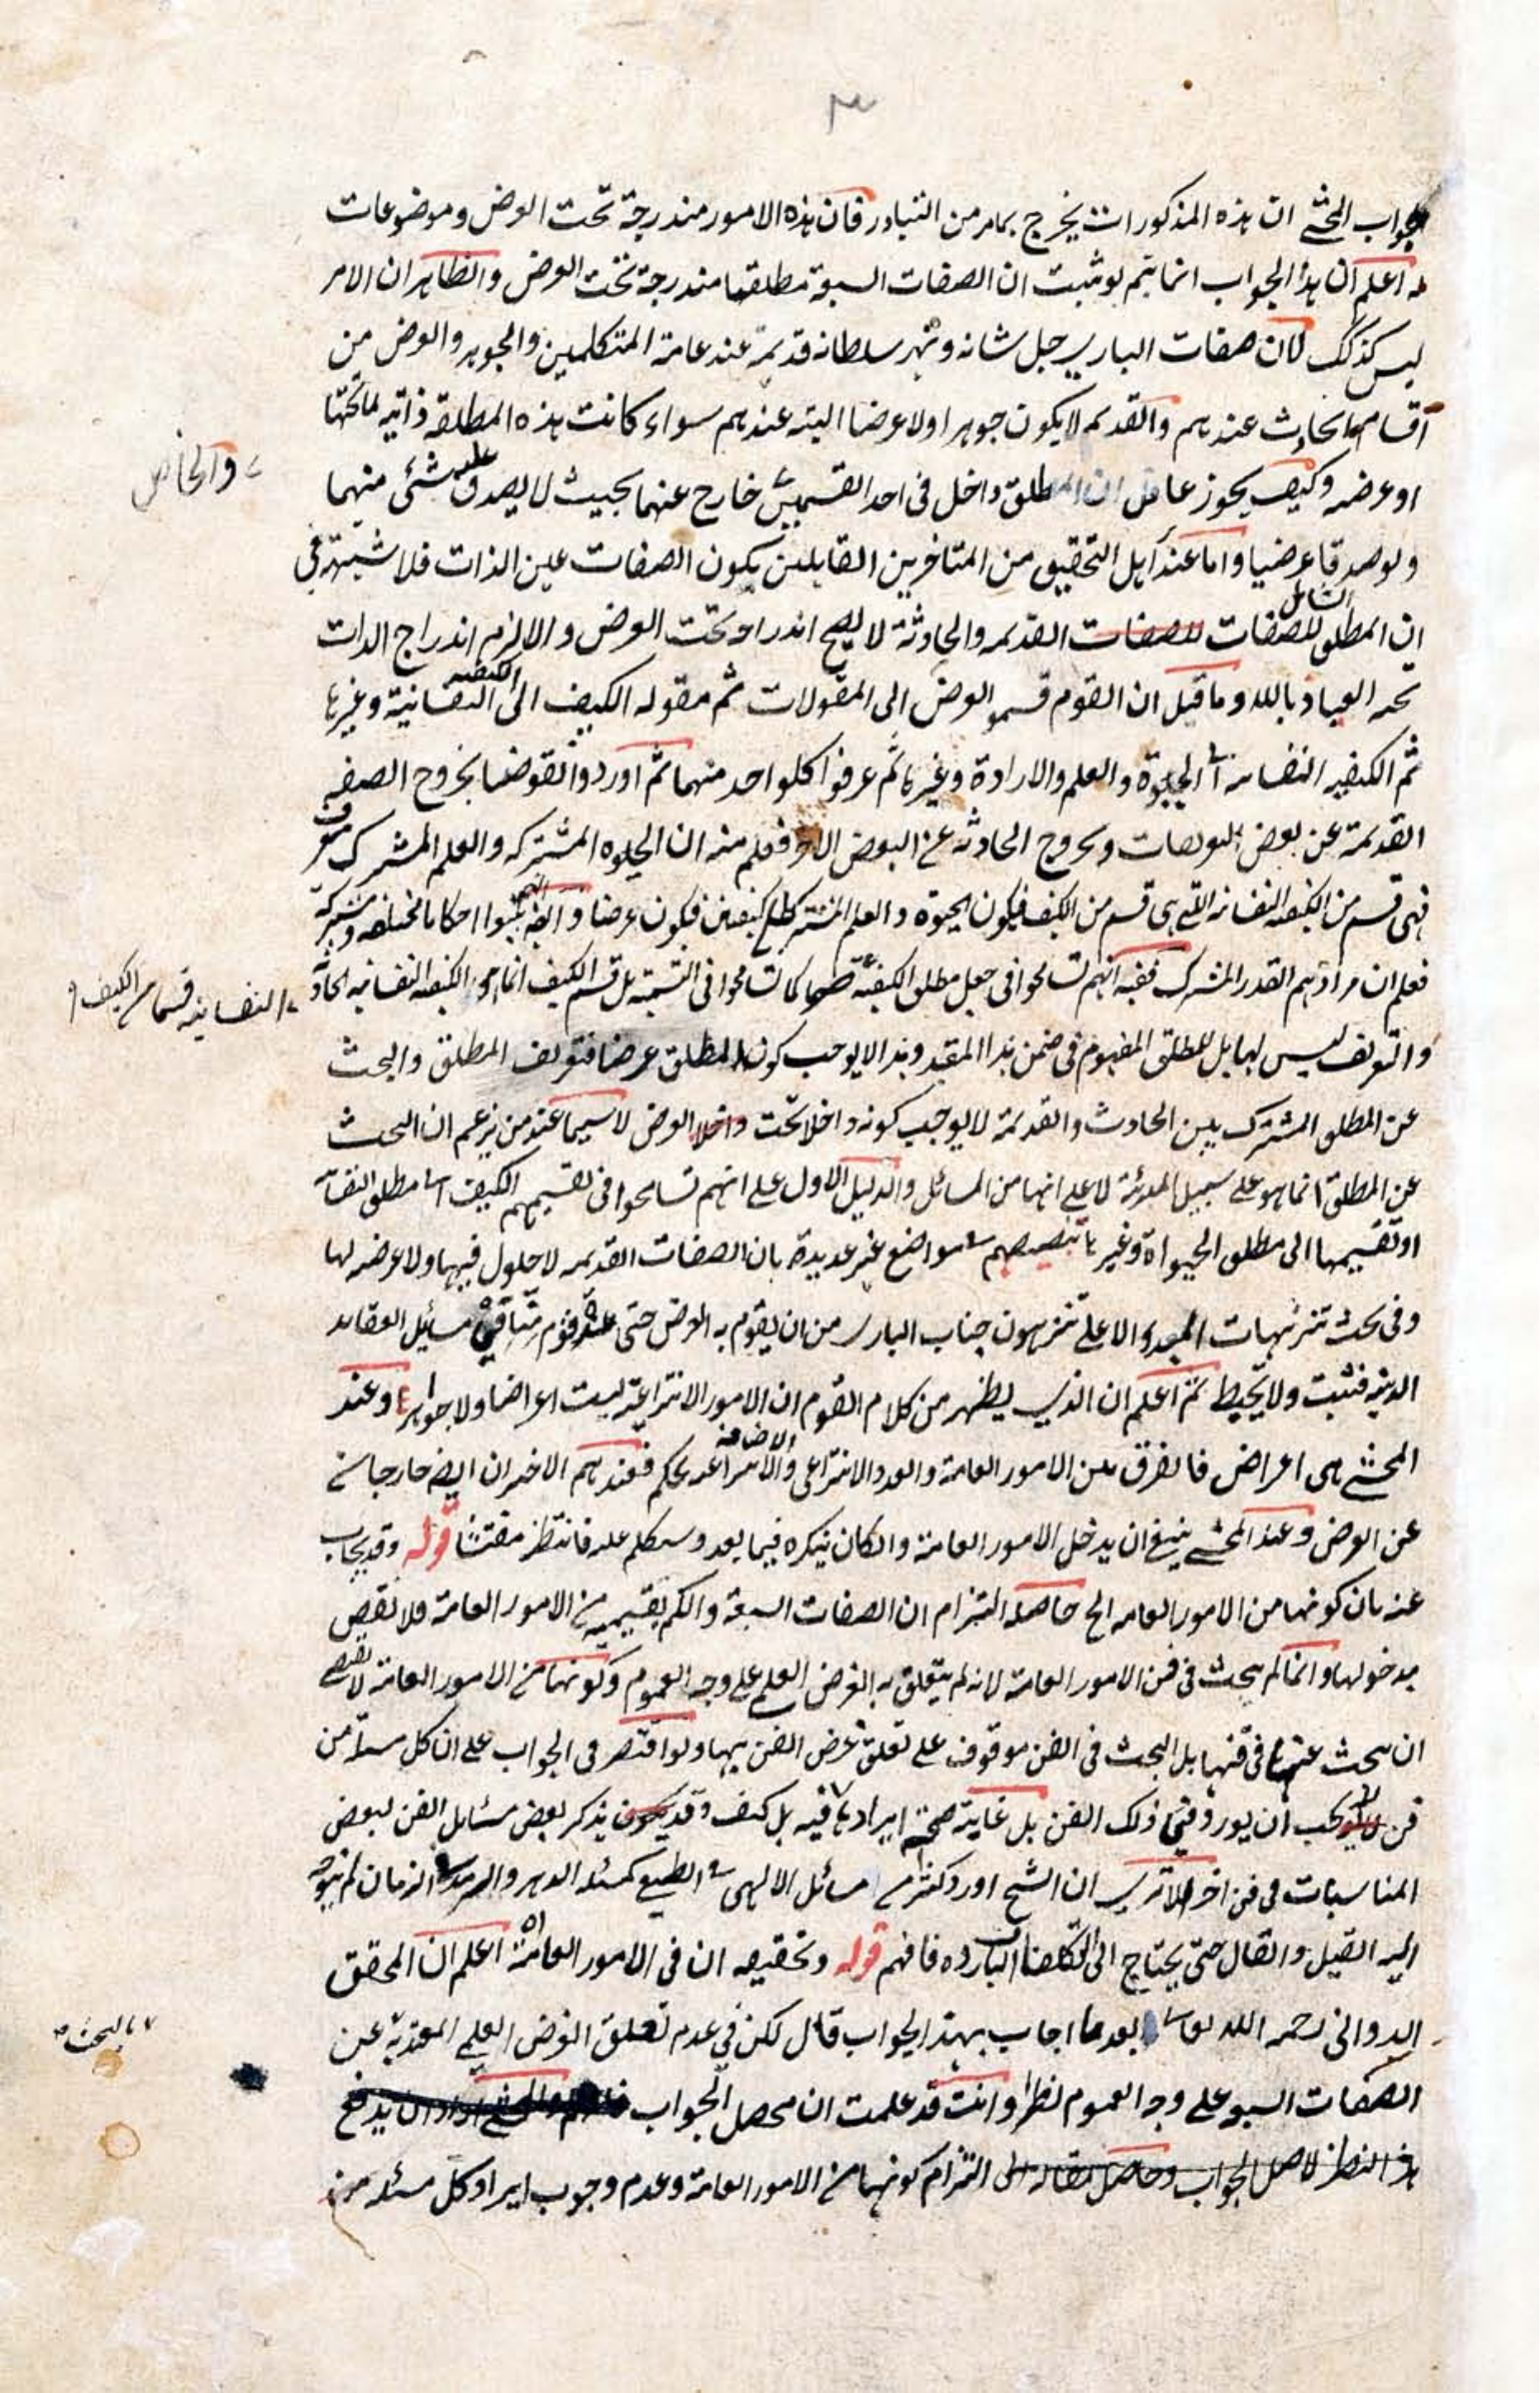 ٣
جواب المحشے ان هذه المذكورات يخرج بمامر من التبادر فان هذه الامور مندرجة تحت العرض وموضوعات
له اعلم ان هذا الجواب انما يتم لو ثبت ان الصفات السبعة مطلقها مندرجة تحت العرض والظاهر ان الامر
ليس كذلك لان صفات الباري جل شانه وبهر سلطانه قديمة عند عامة المتكلمين والجوهر والعرض من
اقسام الحادث عندهم والقديم لا يكون جوهرا ولا عرضا البته عندهم سواء كانت هذه المطلقة ذاتيه لما تحتها
او عرضه وكيف يجوز عاقل ان المطلق داخل فى احد القسمين خارج عنهما بحيث لا يصدق عليه شئى منهما
والحاصل
ولو صدقا عرضيا واما عند اهل التحقيق من المتاخرين القايلين بكون الصفات عين الذات فلا شبهة فى
ان المطلق الشامل للصفات القديمه والحادثة لا يصح اندراجه تحت العرض والا لزم اندراج الذات
تحته العياذ بالله وما قيل ان القوم قسموا العرض الى المقولات ثم مقوله الكيف الى الكيفيه النفسانية وغيرها
ثم الكيفيه النفسانيه الى الحيوة والعلم والارادة وغيرها ثم عرفوا كلواحد منهما ثم اوردوا نقوضا بخروج الصفه
القديمة عن بعض التعريفات وبخروج الحادثه عن البعض الاخر فعلم منه ان الحيوه المشتركه والعلم المشترك
فهى قسم من الكيفيه النفسانيه التى هى قسم من الكيف فيكون الحيوة والعلم المشترك كيفيتين فيكون عرضا وايضا اثبتوا احكاما مختلفه ومشتركة
فعلم ان مرادهم القدر المشترك ففيه انهم تسامحوا فى جعل مطلق الكيفية كما تسامحوا فى التسمية بل قسم الكيف انما هو الكيفيه النفسانيه الحادثة
النفسانيه قسما من الكيف
والتعريف ليس لها بل للمطلق المفهوم فى ضمن هذا المقيد وهذا لا يوجب كون المطلق عرضا فتعريف المطلق والبحث
عن المطلق المشترك بين الحادث والقديمة لا يوجب كونه داخلا تحت العرض لا سيما عند من يزعم ان البحث
عن المطلق انما هو على سبيل المبدئية لا على انها من المسائل والدليل الاول على انهم تسامحوا فى تقسيمهم الكيف الى مطلق النفسانية
او تقسيمها الى مطلق الحيواة وغيرها تنصيصهم فى مواضع غير عديدة بان الصفات القديمه لا حلول فيها ولا عرضه لها
وفى بحث تنزيهات المبدء الاعلے ينزهون جناب الباري من ان يقوم به العرض حتى عنده قوم من مسائل العقايد
الدينيه فتثبت ولا تخبط ثم اعلم ان الذي يظهر من كلام القوم ان الامور الانتزاعية ليست اعراضا ولا جواهر وعند
المحشے هى اعراض فالفرق بين الامور العامة والعدد الانتزاعى والاضافة الانتزاعيه تحكم فعندهم الاخيران ايضا خارجان
عن العرض وعند المحشے ينبغى ان يدخل الامور العامة والكان ينكره فيما بعد وستكلم عليه فانتظر مفتشا قوله وقد يجاب
عنه بان كونها من الامور العامه الخ حاصله التزام ان الصفات السبعة والكم بقسيميه من الامور العامة فلا نقض
بدخولها وانما لم يبحث فى فن الامور العامة لانه لم يتعلق به الغرض العلمى على وجه العموم وكونها من الامور العامة لا يقتضے
ان يبحث عنها فى فنها بل البحث فى الفن موقوف على تعلق غرض الفن بها ولو اقتصر فى الجواب على ان كل مسئلة من
فن لا يجب ان يورد فى ذلك الفن بل غاية صحة ايرادها فيه بل كيف وقد يذكر بعض مسائل الفن لبعض
المناسبات فى فن اخر الا ترى ان الشيخ اورد كثيرا من مسائل الالهى فى الطبيعى كمسئله الدهر والسرمد الزمان لم يتوجه
اليه القيل والقال حتى يحتاج الى التكلفات البارده فافهم قوله وتحقيقه ان فى الامور العامة اه اعلم ان المحقق
الدوانى رحمه الله تعالى بعد ما اجاب بهذا الجواب قال لكن فى عدم تعلق الغرض العلمى المعتد به عن
بالبحث
الصفات السبع على وجه العموم نظرا وانت قد علمت ان محصل الجواب
هذا النظر لاصل الجواب وحاصل مقاله الى التزام كونها من الامور العامة وعدم وجوب ايراد كل مسئله من